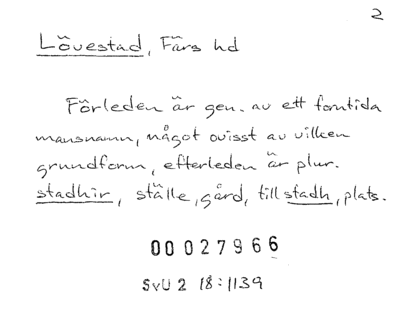 2
Lövestad, Färs hd
Förleden är gen. av ett forntida
mansnamn, något ovisst av vilken
grundform, efterleden är plur.
stadhir, ställe, gård, till stadh, plats.
00027966
SvU 2 18:1139